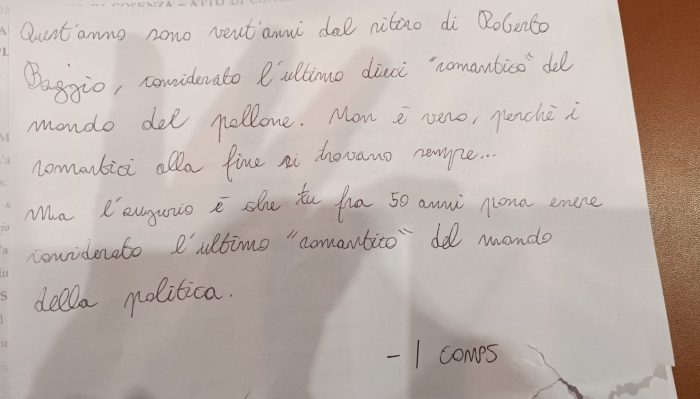 Quest'anno sono vent'anni dal ritiro di Roberto
Baggio, considerato l'ultimo dieci "romantico" del
mondo del pallone. Non è vero, perchè i
romantici alla fine si trovano sempre...
Ma l'augurio è che tu fra 50 anni possa essere
considerato l'ultimo "romantico" del mondo
della politica.
- I COMPS